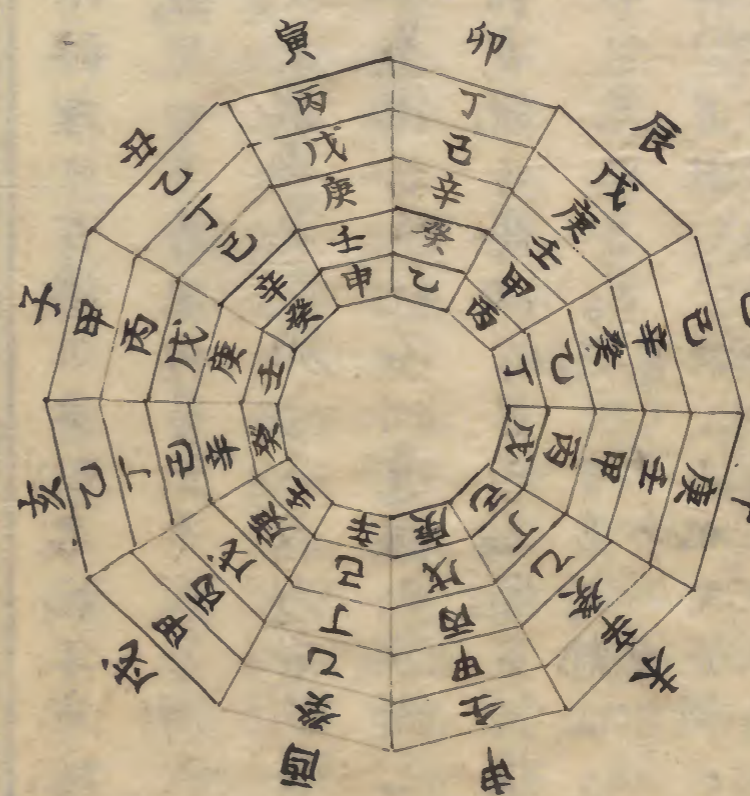 子 甲 丙 戊 庚 壬
丑 乙 丁 己 辛 癸
寅 丙 戊 庚 壬 申
卯 丁 己 辛 癸 乙
辰 戊 庚 壬 甲 丙
己 辛 癸 乙 丁
庚 壬 甲 丙 戊
未 辛 癸 乙 丁 己
申 壬 甲 丙 戊 庚
酉 癸 乙 丁 己 辛
戌 甲 丙 戊 庚 壬
亥 乙 丁 己 辛 癸